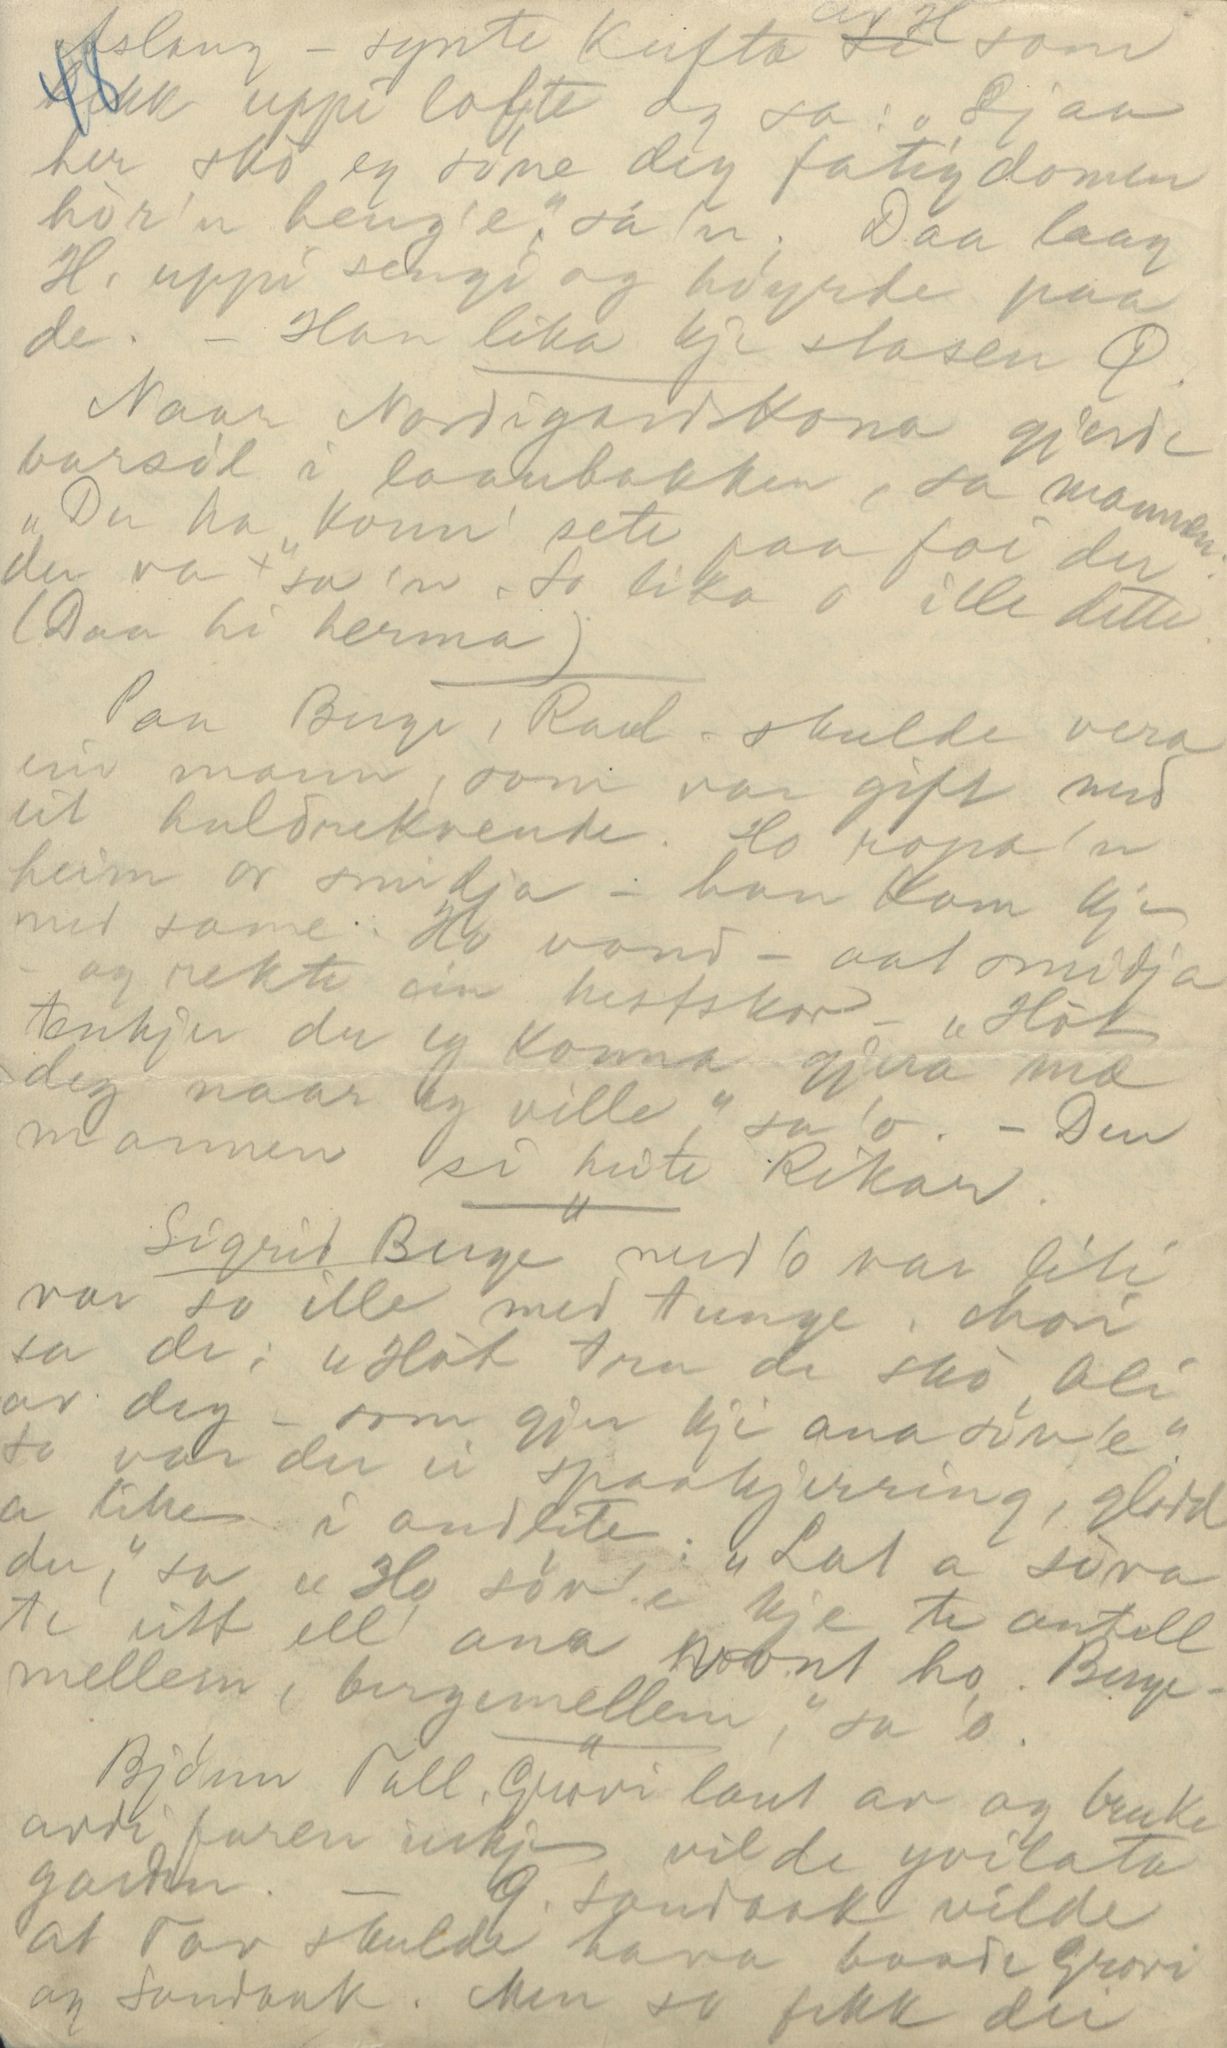 48
Aslaug – synte Kufta si av H som
hekk uppi lofte og sa: „Sjaa
her sko eg sóne dig fatigdomen
hòr'n heng'e," sa'n. Daa laag
H. uppi sengi og høyrde paa
de. – Han lika kje stasen
Naar Nordigardskona gjorde
barsòl i laanbakken, sa mannen:
„Du ha konn' sete paa foi der
du va" sa'n. So lika o ille dette.
(Daa hi herma)
Paa Berge, Raul. skulde vera
ein mann, som var gift med
eit huldrekvende. Ho ropa'n
heim or smidja – han kom kje
med same. Ho vond – aat smidja
– og rekte ein hestskor – „Hòt
tenkjer du eg konna gjera mæ
deg naar eg ville," sa'o. – Den
mannen si heite Rikar.
"
Sigrid Berge med'o var liti
var so ille med tunge. Mori
sa de: „Hòt tru de skò bli
av deg – som gjer kji ana söv'e".
So var der ei spaakjerring, glodd
a like i andlite: „Lat a söva
du," sa „Ho söv'e kje te antell
te eitt ell' ana vont ho. Berge-
mellem, bergemellem," sa'o.
"
Bjønn Tall. Grovi laut av og bruke
ardi faren inkje vilde yvilata
garden. – G. Sandaak vilde
at Tov skulde hava baade Grovi
og Sandaak. Men so fekk dei